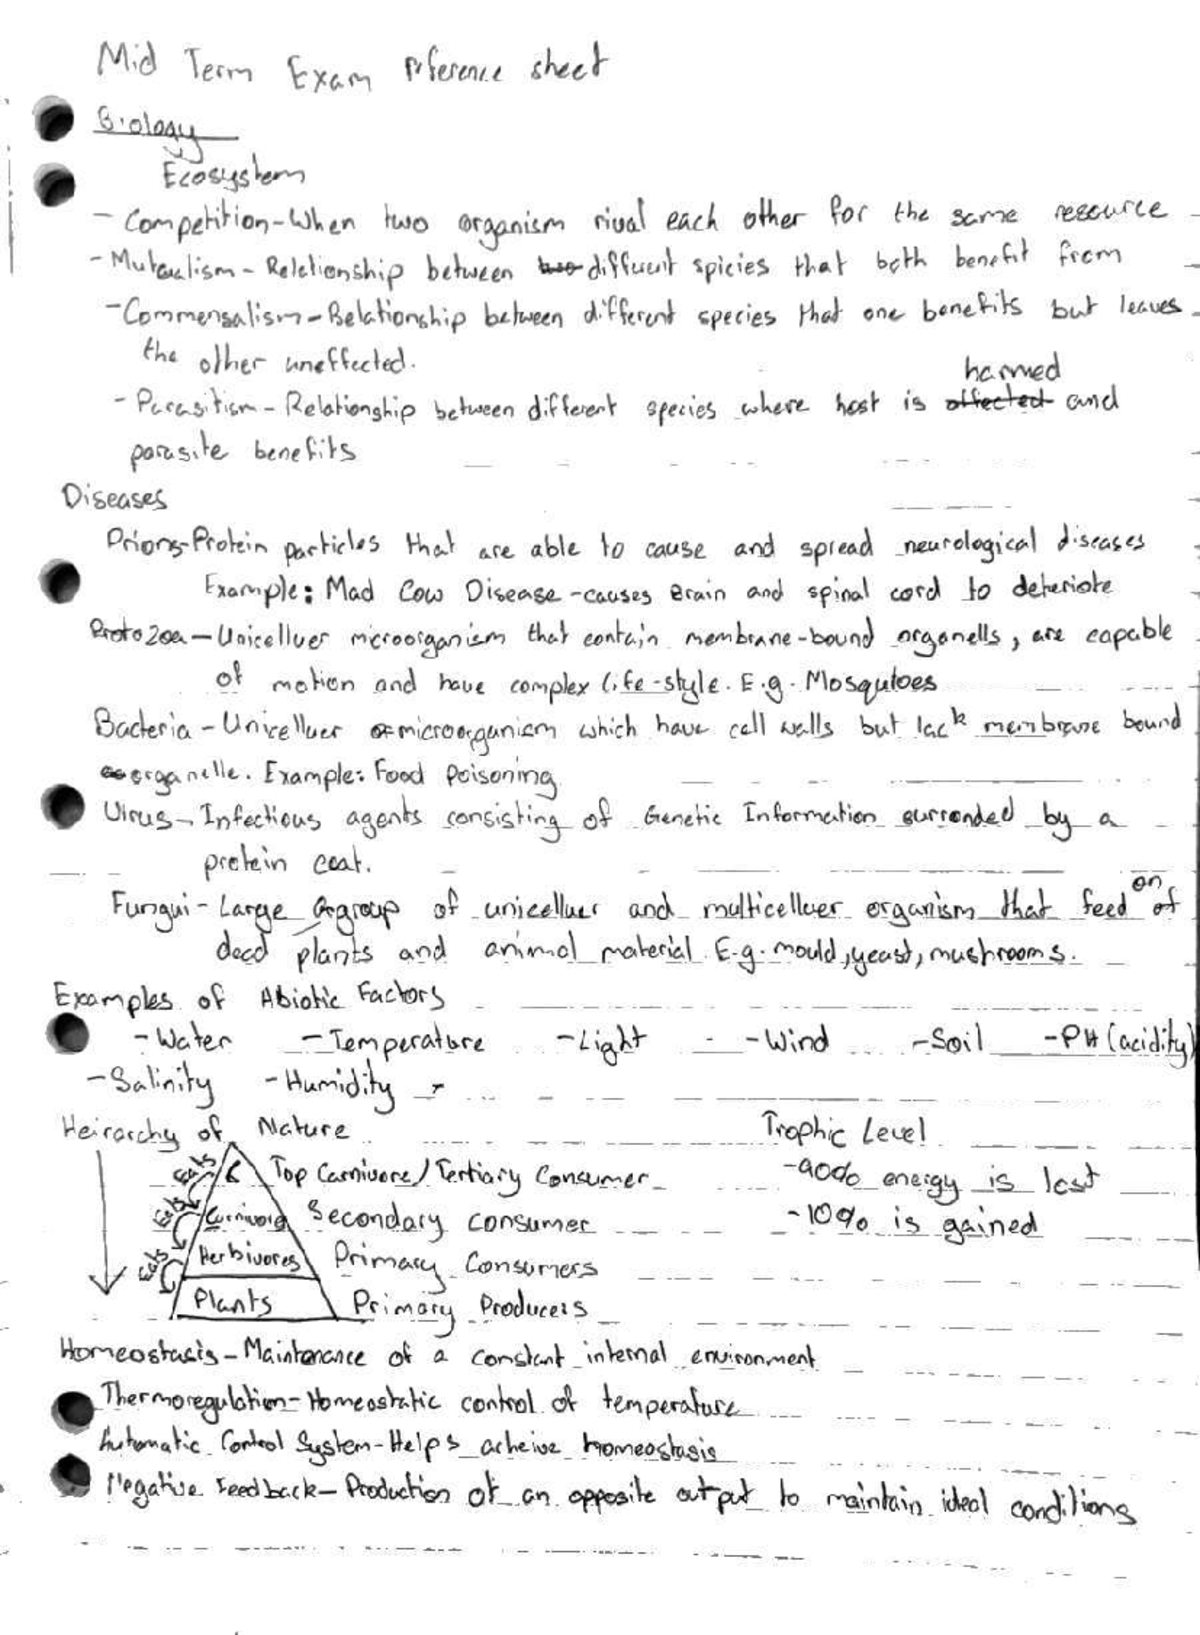 Mid Term Exam reference sheet
Biology
Ecosystem
- Competition - When two organism rival each other for the same resource
- Mutualism - Reletionship between two diffuent spicies that both benefit from
- Commensalism - Relationship between different species that one benefits but leaves
the other uneffected.
harmed
- Parasitism - Relationship between different species where host is affected and
parasite benefits
Diseases
Prions - Protein particles that are able to cause and spread neurological diseases
Example: Mad Cow Disease - causes Brain and spinal cord to deteriote
Protozoa - Unicelluer microorganism that contain membrane-bound organells, are capable
of motion and have complex life-style. E.g. Mosqutoes
Bacteria - Unicelluer of microorganism which have cell walls but lack membrane bound
organelle. Example: Food Poisoning
Virus - Infectious agents consisting of Genetic Information surronded by a
protein coat.
on
Fungui - Large group of unicelluer and multicelluer organism that feed of
dead plants and animal material E.g. mould, yeast, mushrooms.
Examples of Abiotic Factors
- Water - Temperature - Light - Wind - Soil - PH (acidity)
- Salinity - Humidity
Heirarchy of Nature Trophic Level
Eats C Top Carnivore / Tertiary Consumer - 90% energy is lost
Eats Carnivore Secondary consumer - 10% is gained
Eats Herbivores Primary Consumers
Plants Primary Producers
Homeostasis - Maintenance of a constant internal environment
Thermoregulation - Homeostatic control of temperature
Automatic Control System - Helps acheive homeostasis
Negative Feedback - Production of an opposite output to maintain ideal conditions